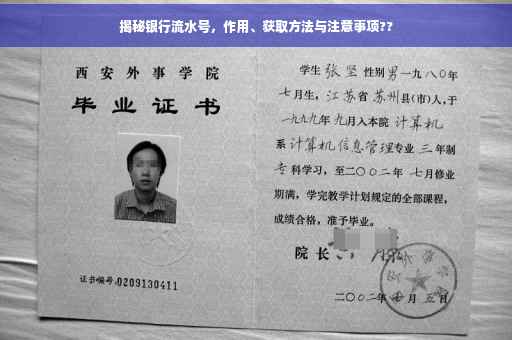 揭秘银行流水号，作用、获取方法与注意事项??
西安外事学院
毕业证书
证书编号:0209130411
学生 张坚 性别 男 一九八〇年
七月生，江苏省 苏州县(市)人，于
一九九九年 九月入本院 计算机
系 计算机信息管理专业 三 年制
专科学习，至二〇〇二年 七月修业
期满，学完教学计划规定的全部课程，
成绩合格，准予毕业。
院长
二〇〇二年 七月 五日